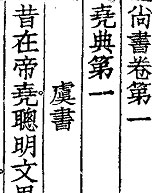 尙書卷第一
堯典第一
虞書
昔在帝堯聰明文思